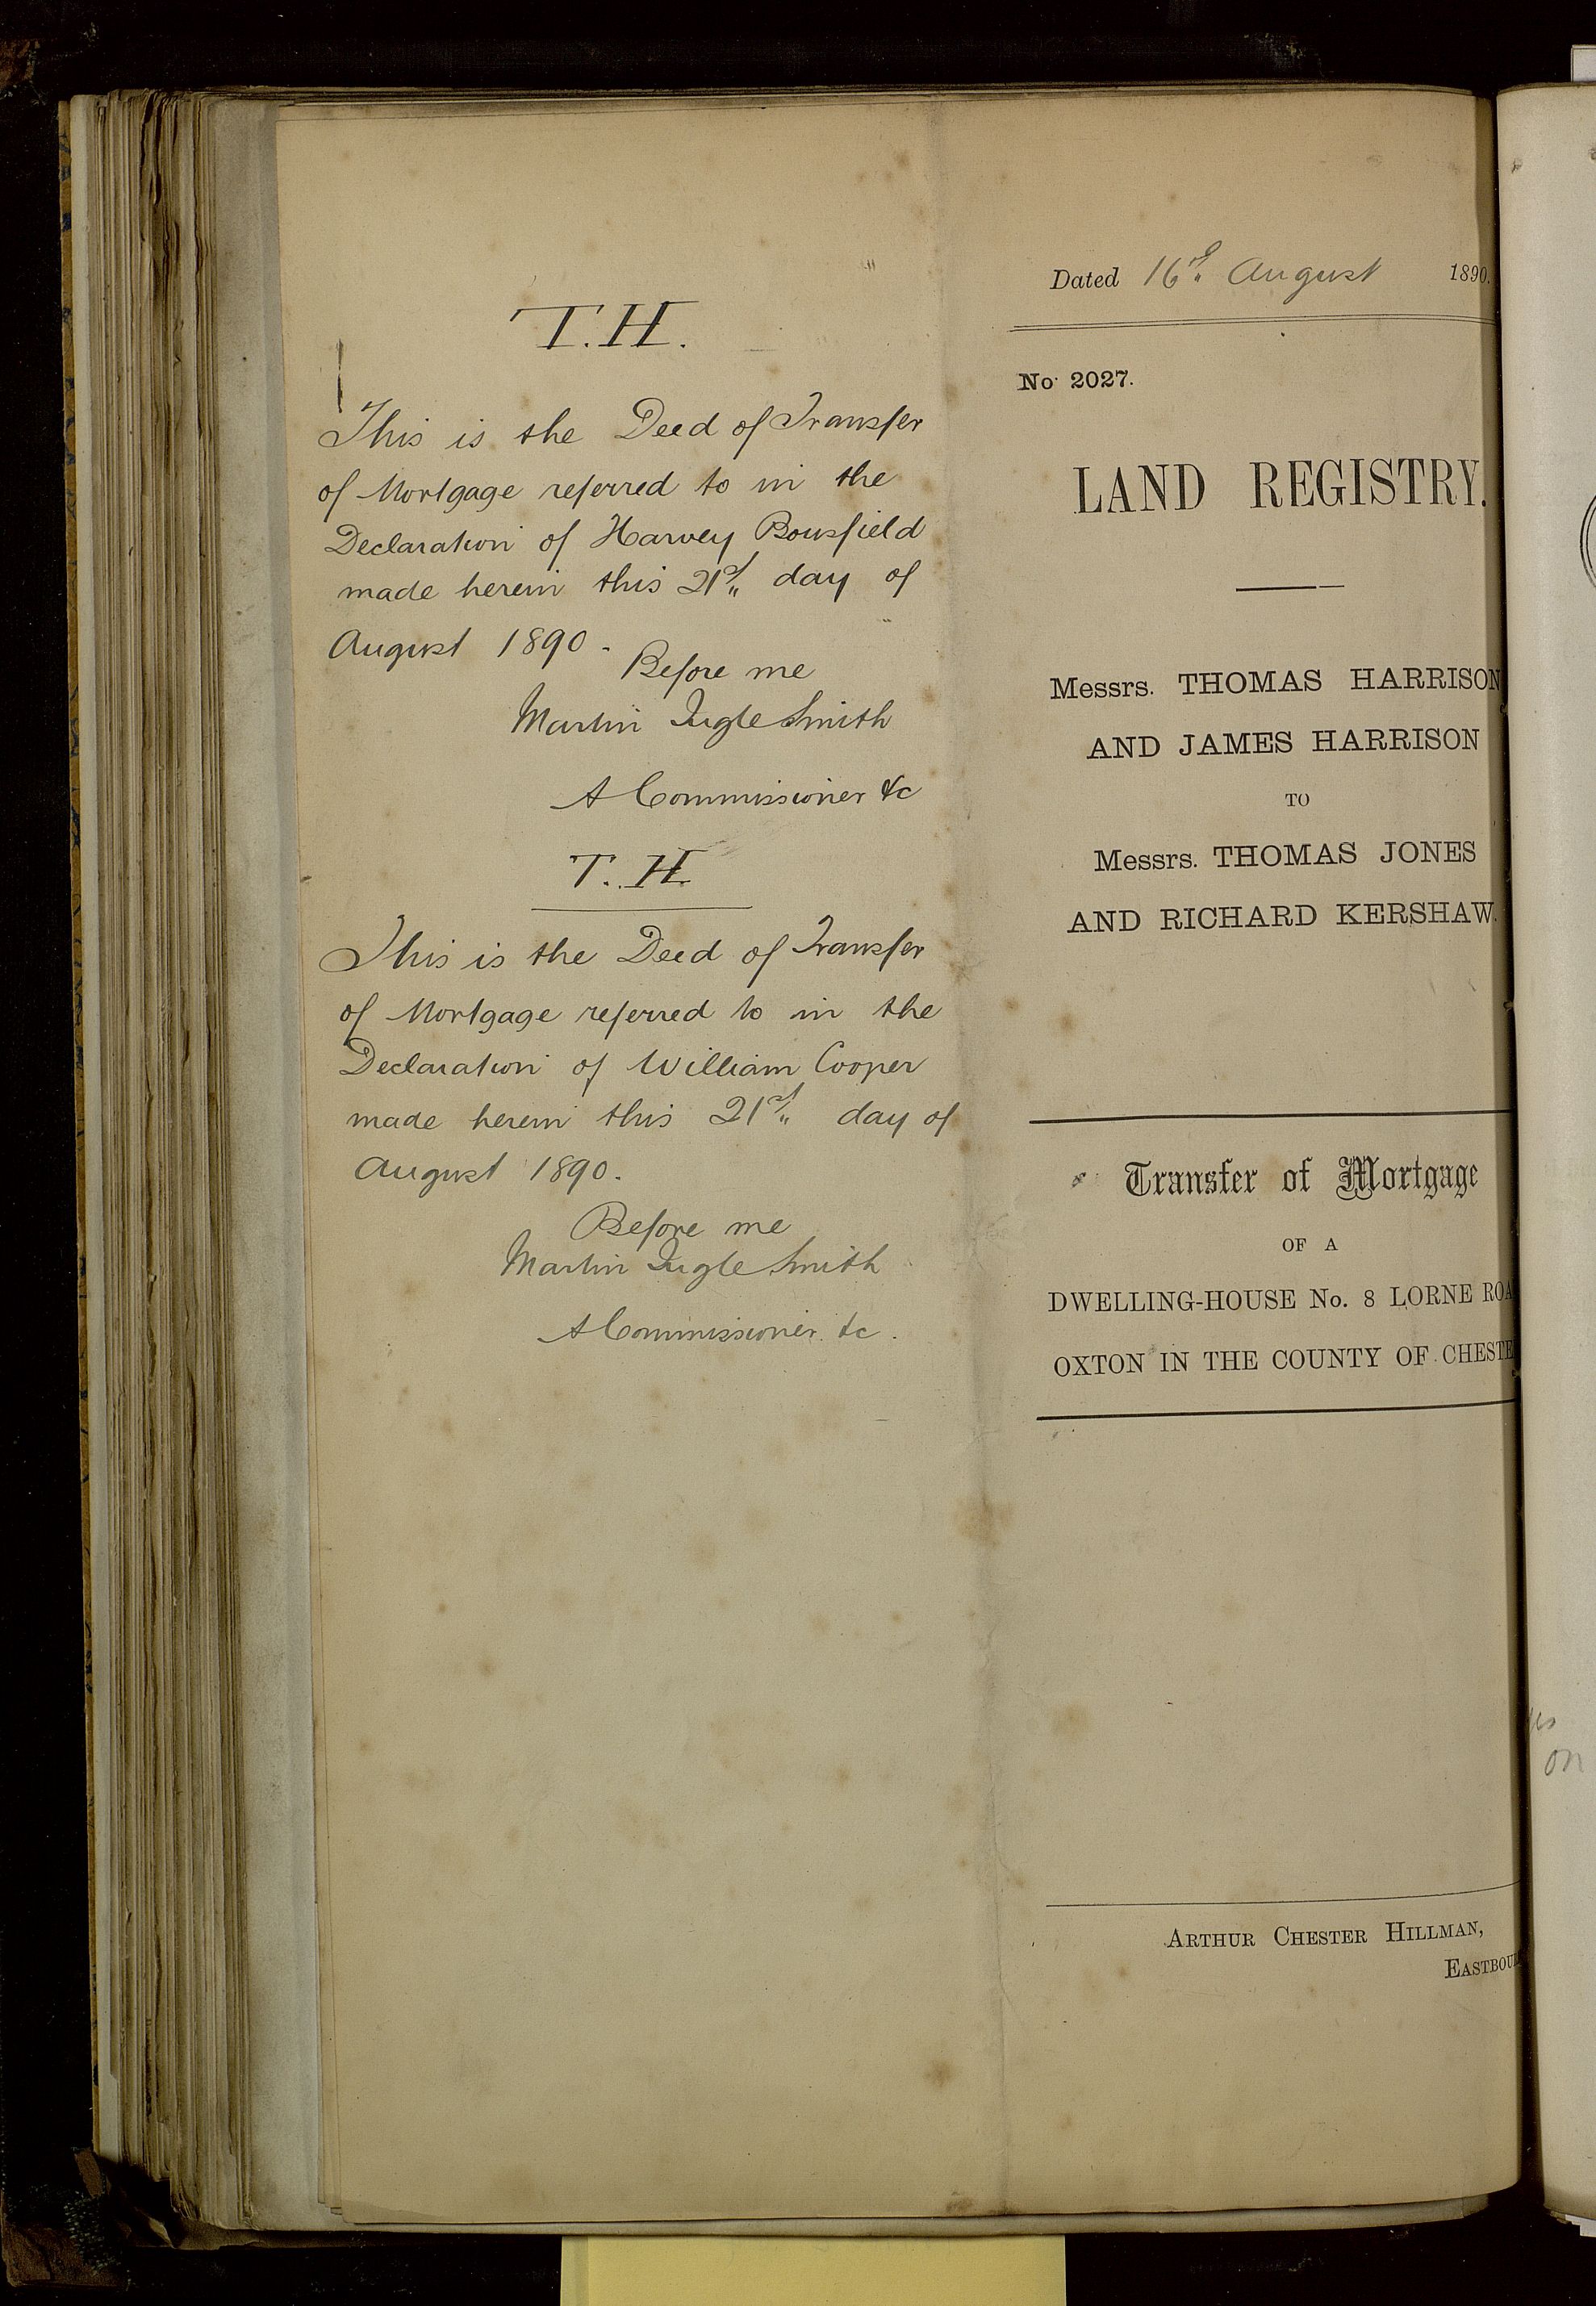 T.H.
This is the Deed of Transfer
of Mortgage referred to in the
Declaration of Harvey Bousfield
made herein this 21st day of
August 1890.
Before me
Martin Ingle Smith
A Commissioner &c
T.H.
This is the Deed of Transfer
of Mortgage referred to in the
Declaration of William Cooper
made herein this 21st day of
August 1890.
Before me
Martin Ingle Smith
A Commissioner &c.
Dated 16th August 1890.
No. 2027.
LAND REGISTRY.
Messrs. THOMAS HARRISON
AND JAMES HARRISON
TO
Messrs. THOMAS JONES
AND RICHARD KERSHAW.
Transfer of Mortgage
OF A
DWELLING-HOUSE No. 8 LORNE ROA
OXTON IN THE COUNTY OF CHESTE
ARTHUR CHESTER HILLMAN,
EASTBOU
on